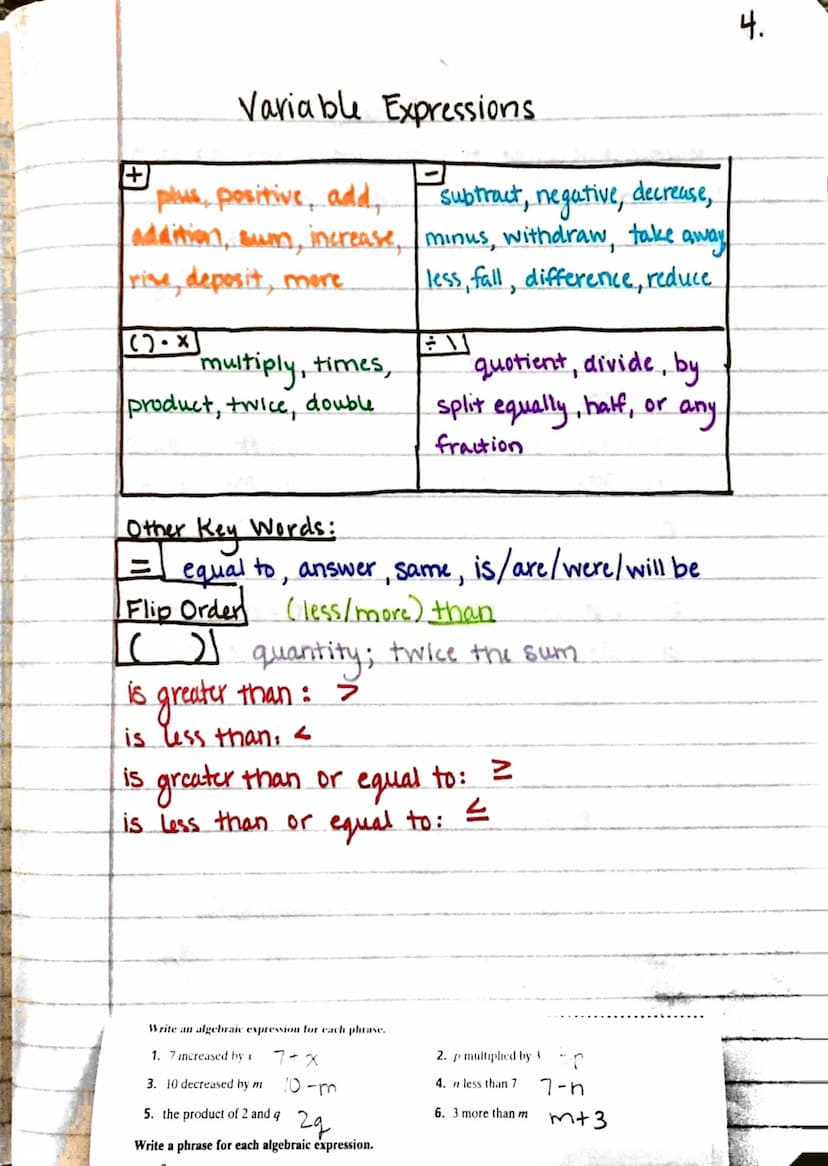 4.
Variable Expressions
+
plus, positive, add,
addition, sum, increase,
rise, deposit, more
-
subtract, negative, decrease,
minus, withdraw, take away
less, fall, difference, reduce
( ) · x
multiply, times,
product, twice, double
÷ \
quotient, divide, by
split equally, half, or any
fraction
Other Key Words:
= equal to, answer, same, is/are/were/will be
Flip Order (less/more) than
( ) quantity; twice the sum
is greater than: >
is less than: <
is greater than or equal to: ≥
is less than or equal to: ≤
Write an algebraic expression for each phrase.
1. 7 increased by 7+x
2. p multiplied by p
3. 10 decreased by m 10-m
4. n less than 7 7-n
5. the product of 2 and q 2q
6. 3 more than m m+3
Write a phrase for each algebraic expression.